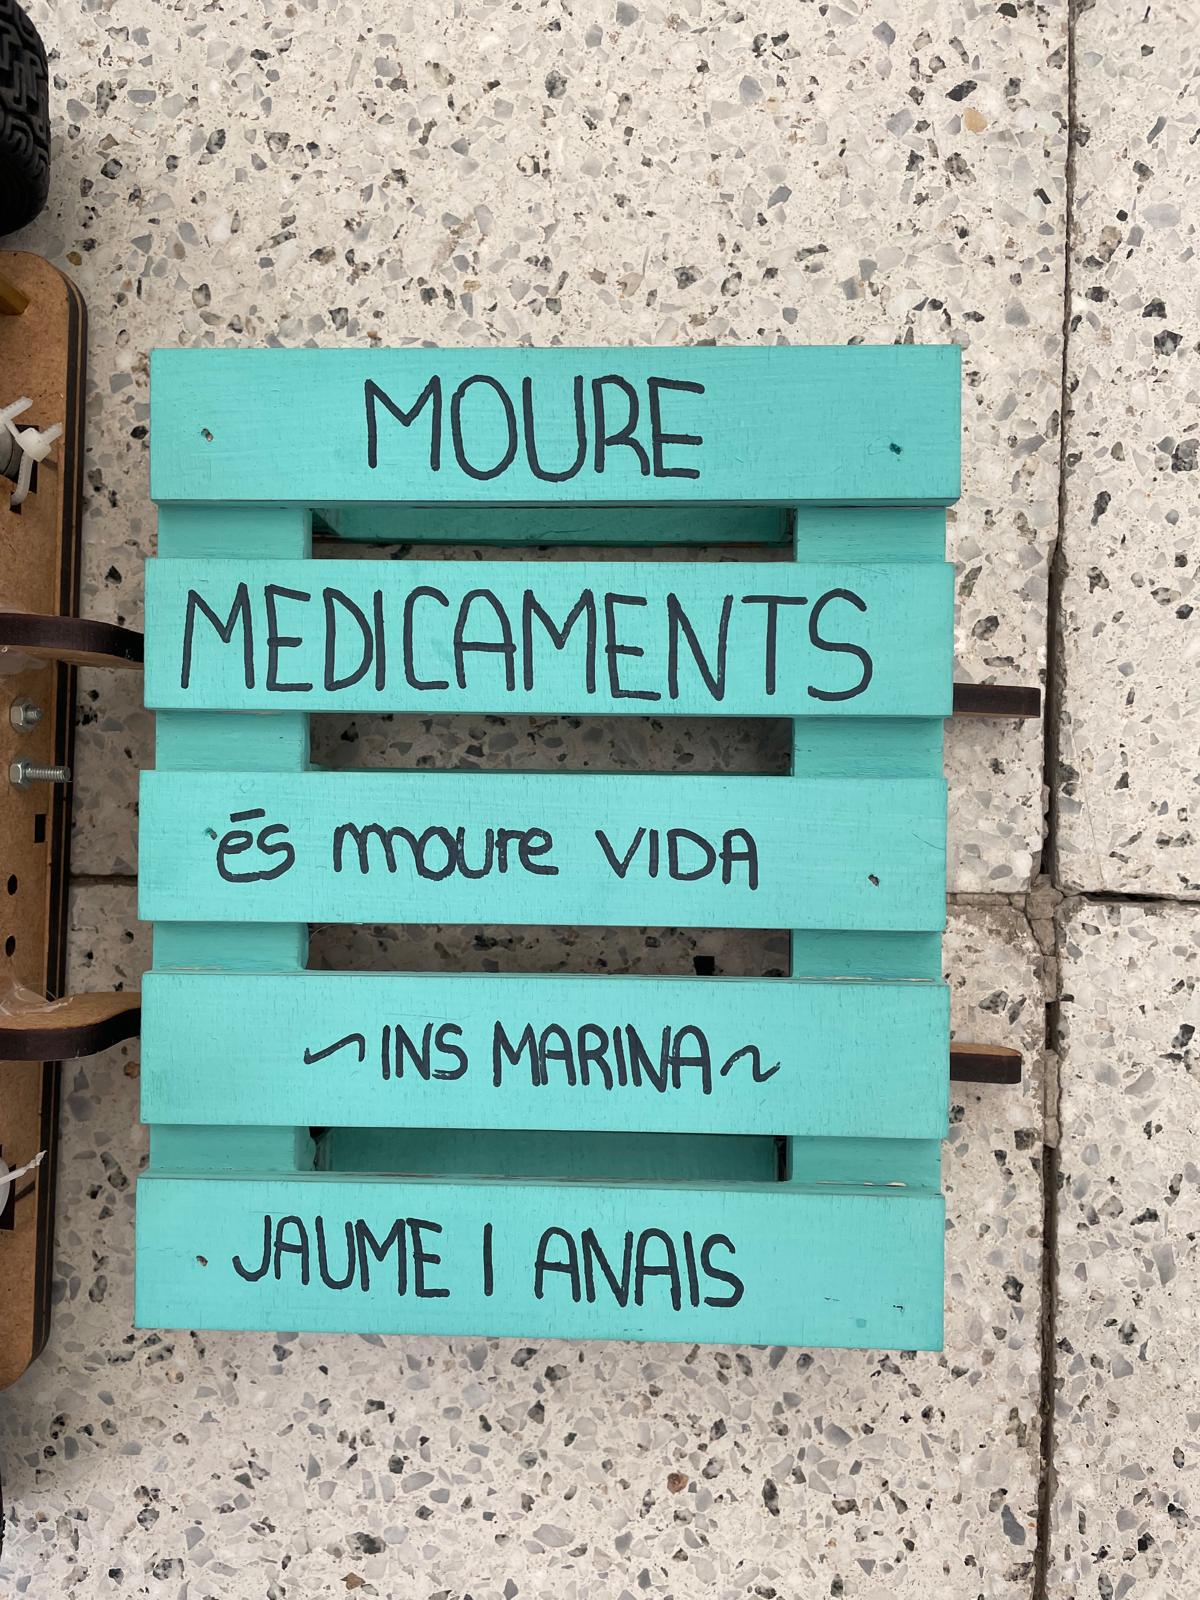 MOURE
MEDICAMENTS
és moure VIDA
~INS MARINA~
JAUME I ANAIS